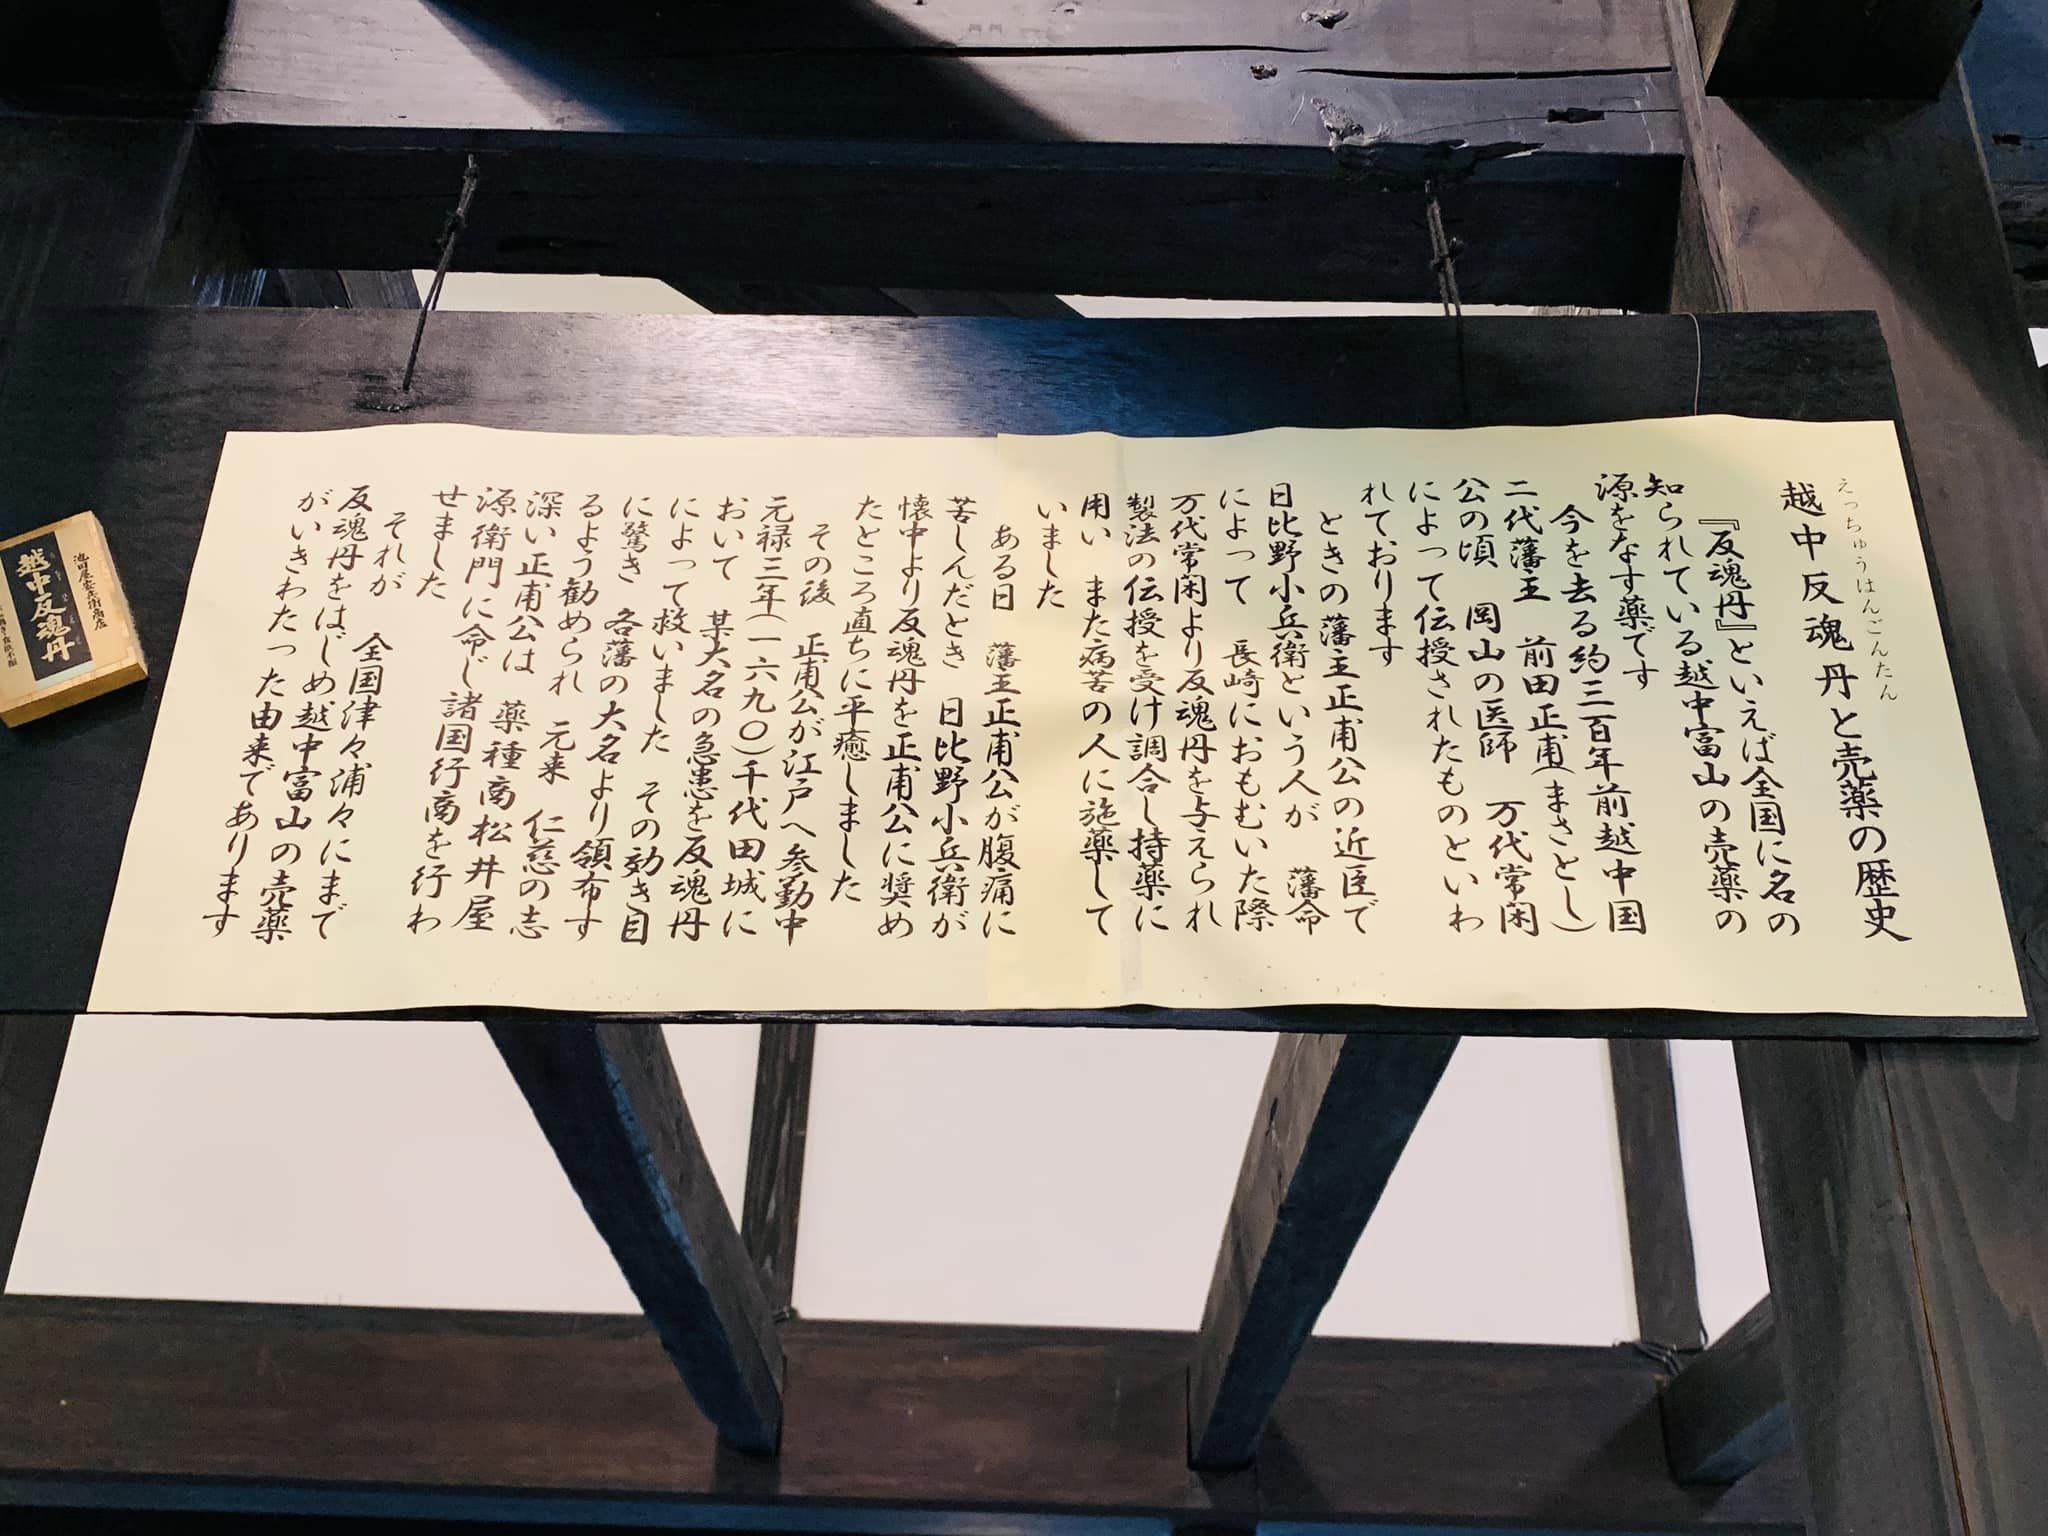 えっちゅうはんごんたん
越中反魂丹と売薬の歴史
『反魂丹』といえば全国に名の
知られている越中富山の売薬の
源をなす薬です
今を去る約三百年前越中国
二代藩主 前田正甫(まさとし)
公の頃 岡山の医師 万代常閑
によって伝授されたものといわ
れております
ときの藩主正甫公の近臣で
日比野小兵衛という人が 藩命
によって 長崎におもむいた際
万代常閑より反魂丹を与えられ
製法の伝授を受け調合し持薬に
用い また病苦の人に施薬して
いました
ある日 藩主正甫公が腹痛に
苦しんだとき 日比野小兵衛が
懐中より反魂丹を正甫公に奨め
たところ直ちに平癒しました
その後 正甫公が江戸へ参勤中
元禄三年(一六九〇)千代田城に
おいて 某大名の急患を反魂丹
によって救いました その効き目
に驚き 各藩の大名より領布す
るよう勧められ 元来 仁慈の志
深い正甫公は 薬種商松井屋
源衛門に命じ諸国行商を行わ
せました
それが 全国津々浦々にまで
反魂丹をはじめ越中富山の売薬
がいきわたった由来であります
池田屋安兵衛商店
越中反魂丹